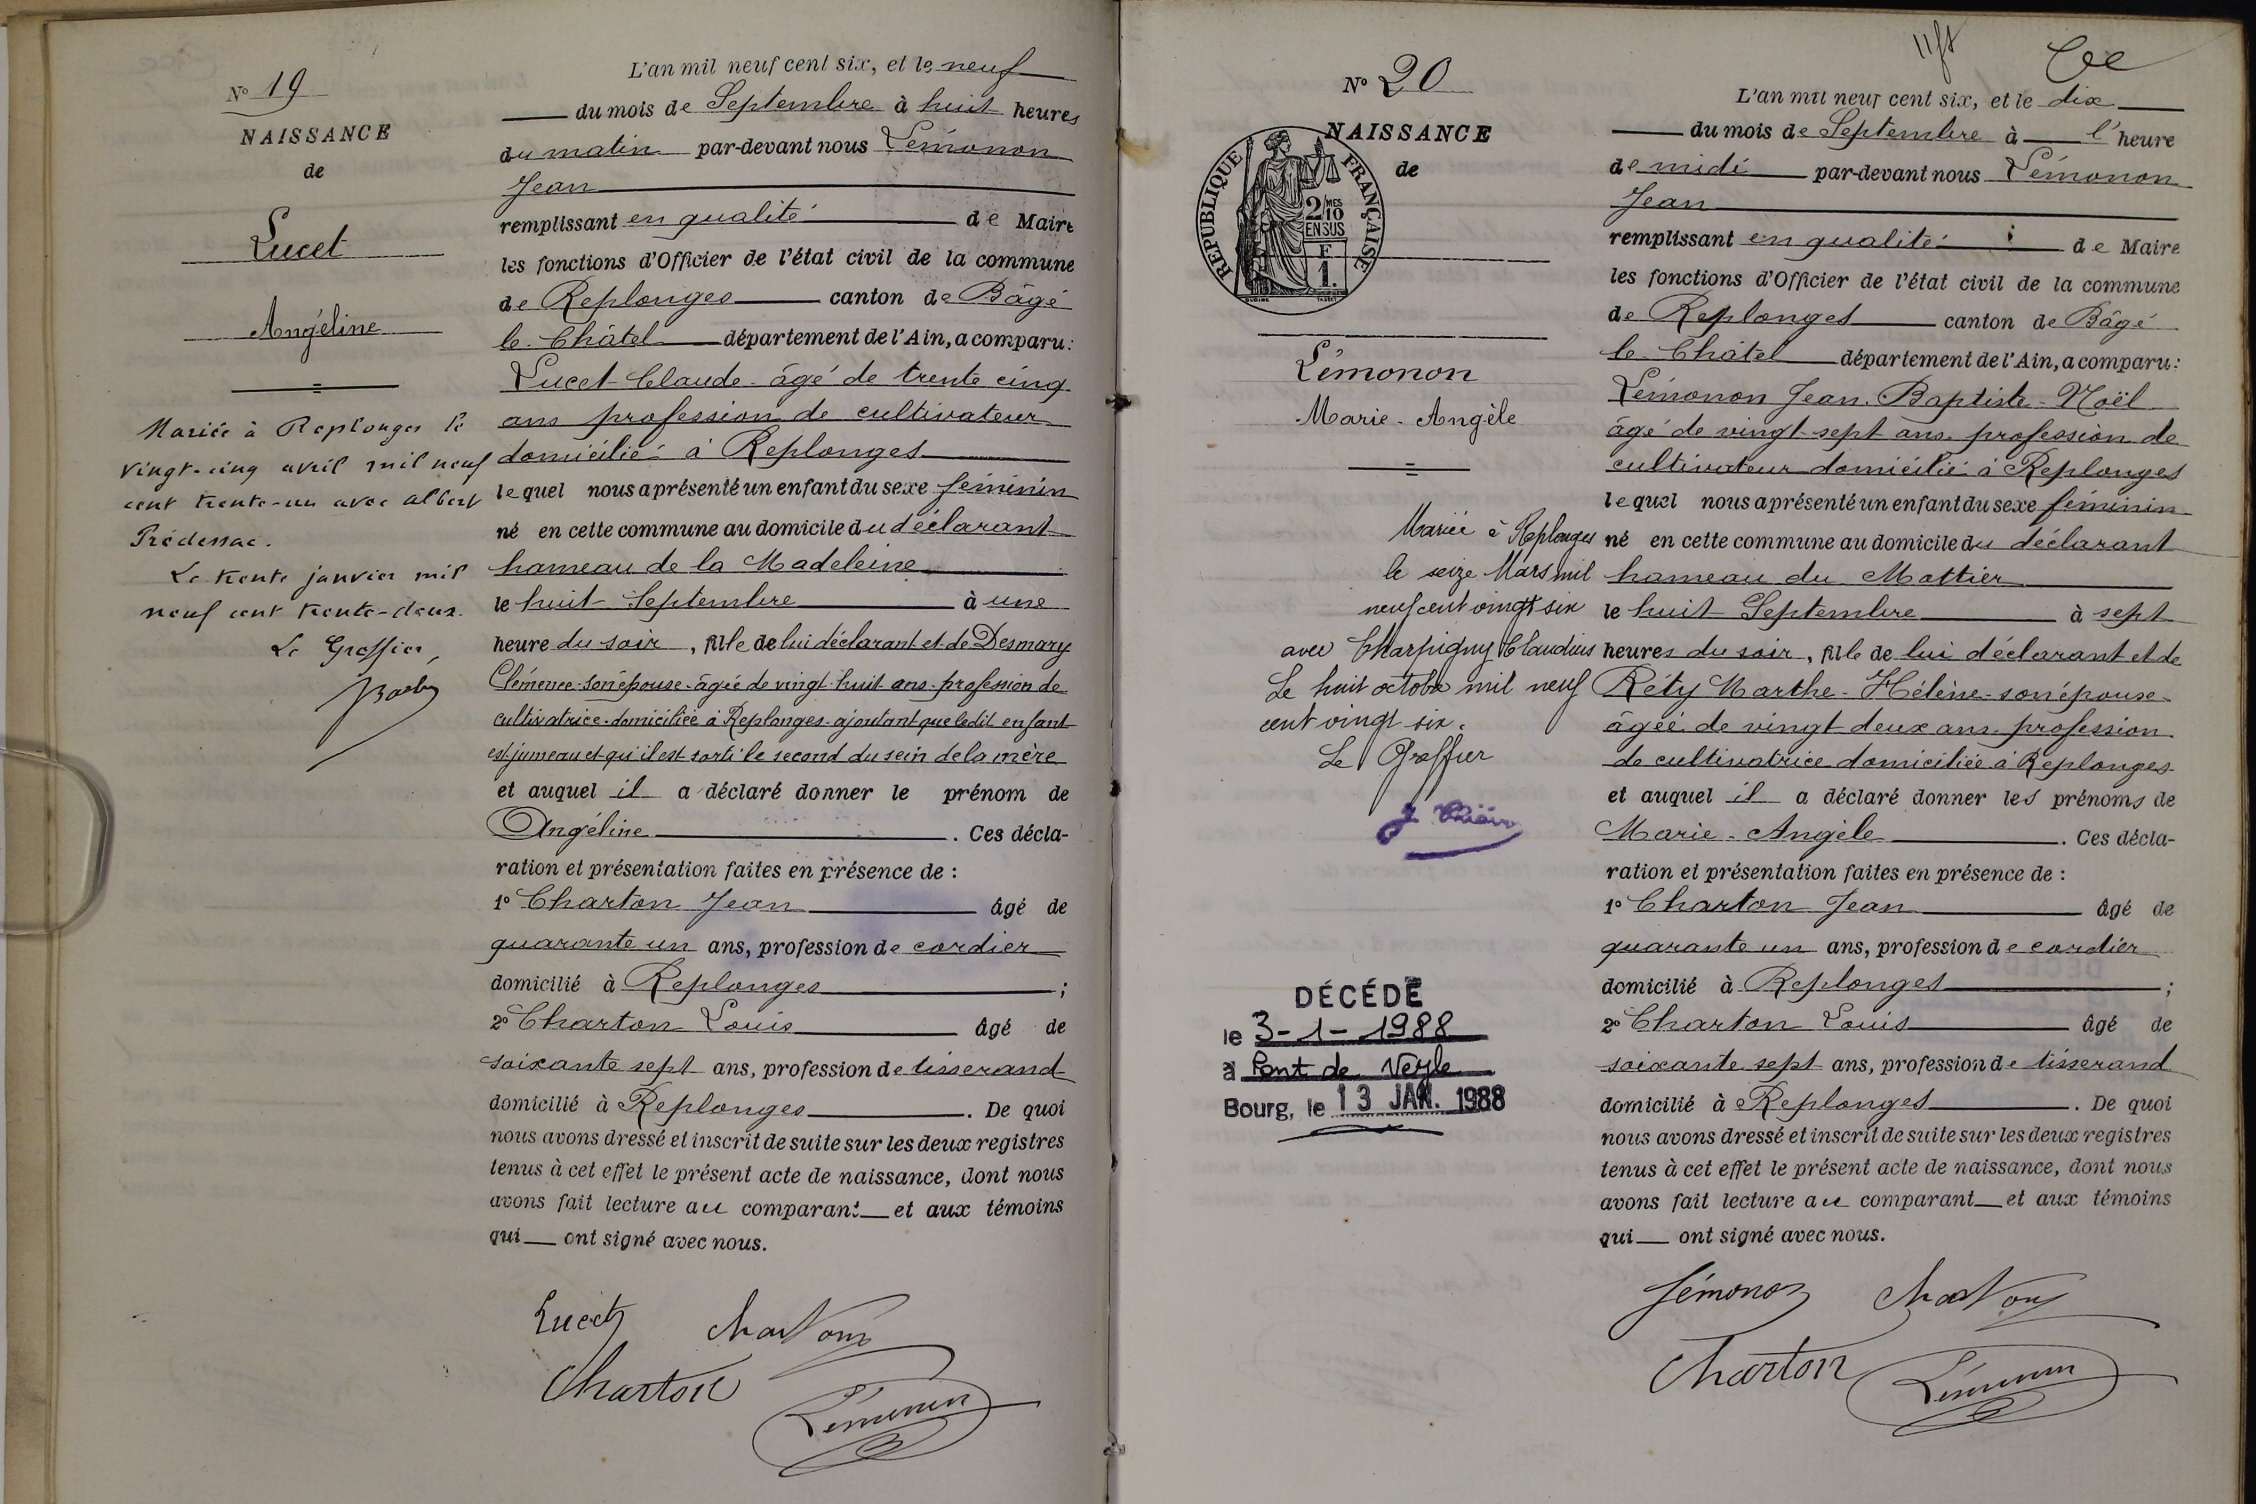 N° 19
NAISSANCE
de
Lucet
Angéline
Mariée à Replonges le
vingt-cinq avril mil neuf
cent trente-un avec Albert
Prédessac.
Le trente janvier mil
neuf cent trente-deux.
Le Greffier,
L'an mil neuf cent six, et le neuf
du mois de Septembre à huit heures
du matin par-devant nous Lémonon
Jean
remplissant en qualité de Maire
les fonctions d'Officier de l'état civil de la commune
de Replonges canton de Bâgé
le Châtel département de l'Ain, a comparu:
Lucet Claude âgé de trente cinq
ans profession de cultivateur
domicilié à Replonges
lequel nous a présenté un enfant du sexe féminin
né en cette commune au domicile du déclarant
hameau de la Madeleine
le huit Septembre à une
heure du soir, fille de lui déclarant et de Desmary
Clémence son épouse âgée de vingt huit ans profession de
cultivatrice domiciliée à Replonges ajoutant que ledit enfant
est jumeau et qu'il est sorti le second du sein de la mère
et auquel il a déclaré donner le prénom de
Angéline. Ces décla-
ration et présentation faites en présence de :
1° Charton Jean âgé de
quarante un ans, profession de cordier
domicilié à Replonges ;
2° Charton Louis âgé de
soixante sept ans, profession de tisserand
domicilié à Replonges. De quoi
nous avons dressé et inscrit de suite sur les deux registres
tenus à cet effet le présent acte de naissance, dont nous
avons fait lecture au comparant et aux témoins
qui ont signé avec nous.
Lucet Charton
Charton Lémonon
N° 20
NAISSANCE
de
RÉPUBLIQUE FRANÇAISE
2 MES
10
EN SUS
F
1.
Lémonon
Marie-Angèle
Mariée à Replonges
le seize Mars mil
neuf cent vingt six
avec Charpigny Claudius
Le huit octobre mil neuf
cent vingt six.
Le Greffier
DÉCÉDÉ
le 3-1-1988
à Pont de Veyle
Bourg, le 13 JAN. 1988
L'an mil neuf cent six, et le dix
du mois de Septembre à l'heure
de midi par-devant nous Lémonon
Jean
remplissant en qualité de Maire
les fonctions d'Officier de l'état civil de la commune
de Replonges canton de Bâgé
le Châtel département de l'Ain, a comparu:
Lémonon Jean-Baptiste-Noël
âgé de vingt-sept ans profession de
cultivateur domicilié à Replonges
lequel nous a présenté un enfant du sexe féminin
né en cette commune au domicile du déclarant
hameau du Mottier
le huit Septembre à sept
heures du soir, fille de lui déclarant et de
Réty Marthe-Hélène son épouse
âgée de vingt deux ans profession
de cultivatrice domiciliée à Replonges
et auquel il a déclaré donner les prénoms de
Marie-Angèle. Ces décla-
ration et présentation faites en présence de :
1° Charton Jean âgé de
quarante un ans, profession de cordier
domicilié à Replonges ;
2° Charton Louis âgé de
soixante sept ans, profession de tisserand
domicilié à Replonges. De quoi
nous avons dressé et inscrit de suite sur les deux registres
tenus à cet effet le présent acte de naissance, dont nous
avons fait lecture au comparant et aux témoins
qui ont signé avec nous.
Lémonon Charton
Charton Lémonon